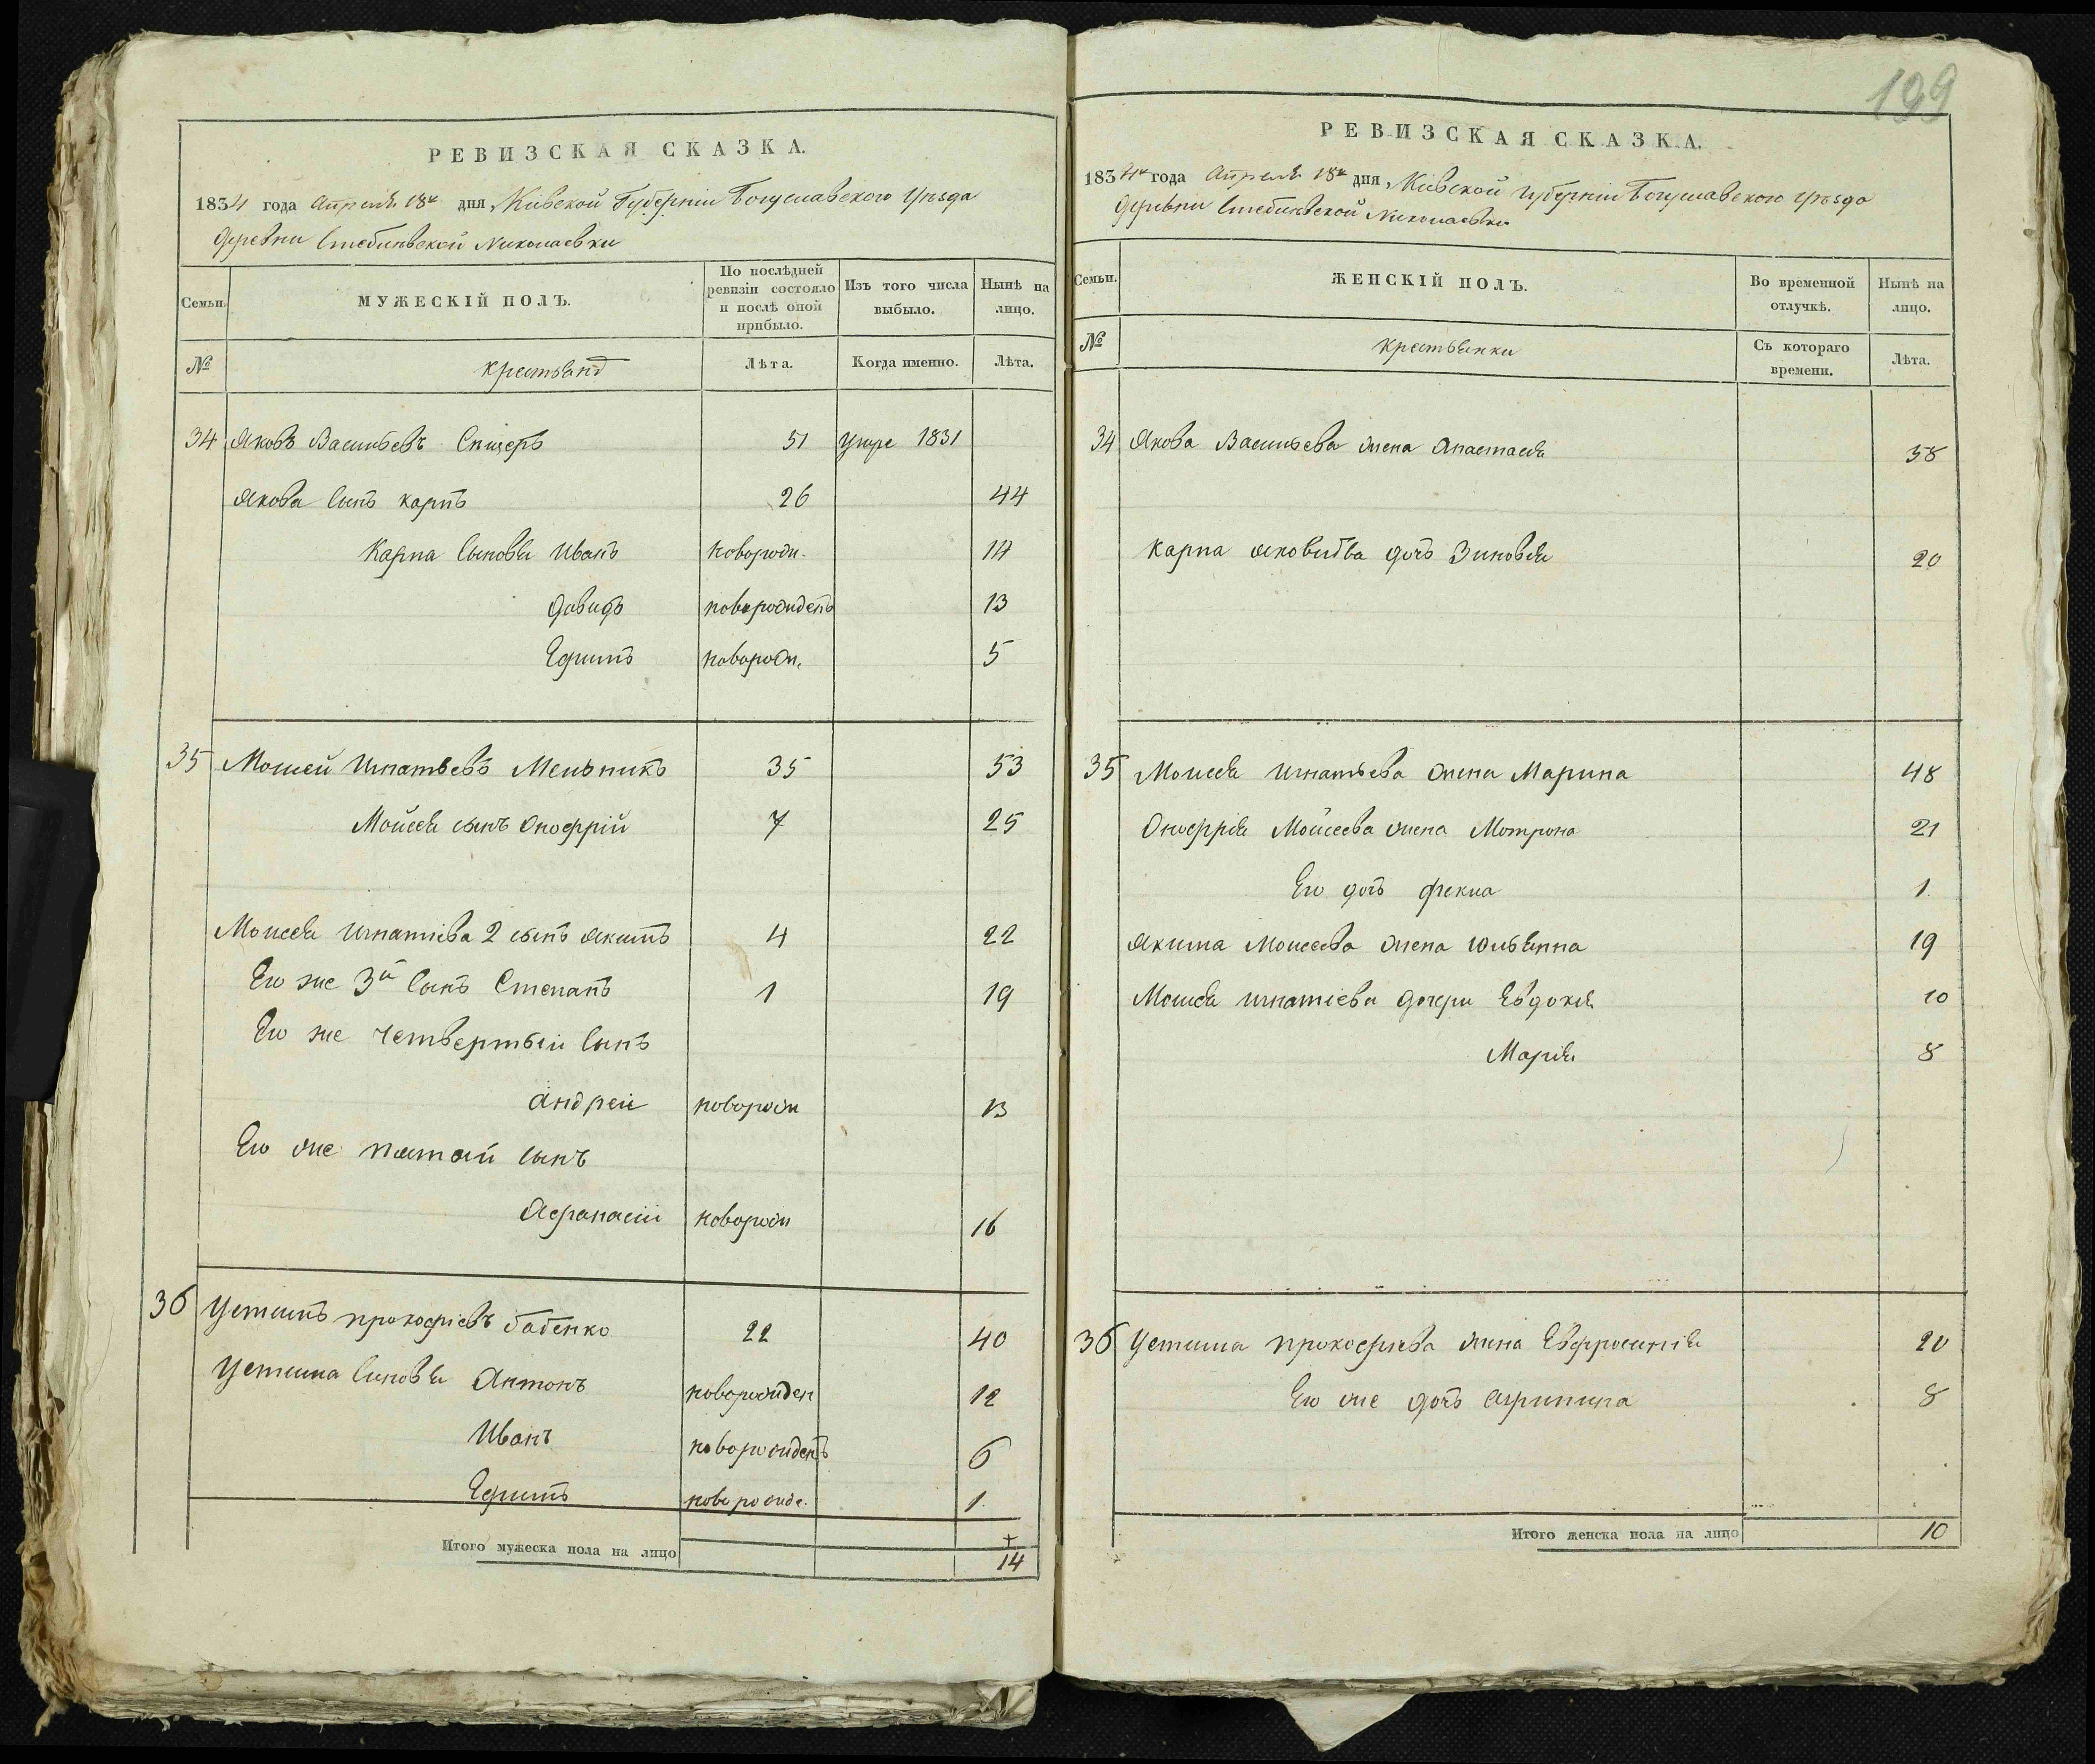 РЕВИЗСКАЯ СКАЗКА.
1834 года Апреля 18го дня, Кіевской Губерніи Богуславского Уѣзда
деревни Стебинвской Николаевки
Семьи.
МУЖЕСКІЙ ПОЛЪ.
По послѣдней ревизіи состояло и послѣ оной прибыло.
Изъ того числа выбыло.
Нынѣ на лицо.
№
крестьянъ
Лѣта.
Когда именно.
Лѣта.
34 Яковъ Васильевъ 51 умре 1831
Якова Сынъ карпъ 26 44
Карпа Сыновья Иванъ новорожд. 14
давидъ новорожденъ 13
Ефимъ новорожд. 5
35 Моисей Игнатьевъ Мельникъ 35 53
Мойсея сынъ Онофрій 7 25
Моисея Игнатіева 2 сынъ Якимъ 4 22
Его же 3й Сынъ Степанъ 1 19
Его же четвертый Сынъ
андрей новорожд 13
Его же пятой сынъ
Афанасій новорожд 16
36 Устимъ прокофіевъ бабенко 22 40
Устима Синовья Антонъ новорожден 12
Иванъ новорожденъ 6
Ефимъ новорожде. 1.
Итого мужеска пола на лицо 14
199
РЕВИЗСКАЯ СКАЗКА.
1834го года Апреля 18го дня, Кіевской Губерніи Богуславского Уѣзда
деревни Стебинвской Николаевки
Семьи.
ЖЕНСКІЙ ПОЛЪ.
Во временной отлучкѣ.
Нынѣ на лицо.
№
крестьянки
Съ котораго времени.
Лѣта.
34 Якова Васильева жена Анастасія 58
Карпа яковлева дочь Зиновія 20
35 Моисея Игнатьева жена Марина 48
Онофрія Мойсеева жена Мотрона 21
Его дочь фекла 1.
Якима Моисеева жена Юльянна 19
Моисея игнатіева дочери Евдокія 10
Марія 8
36 Устима прокофиева жена Евфросинія 20
Его же дочь агрипина 8
Итого женска пола на лицо 10